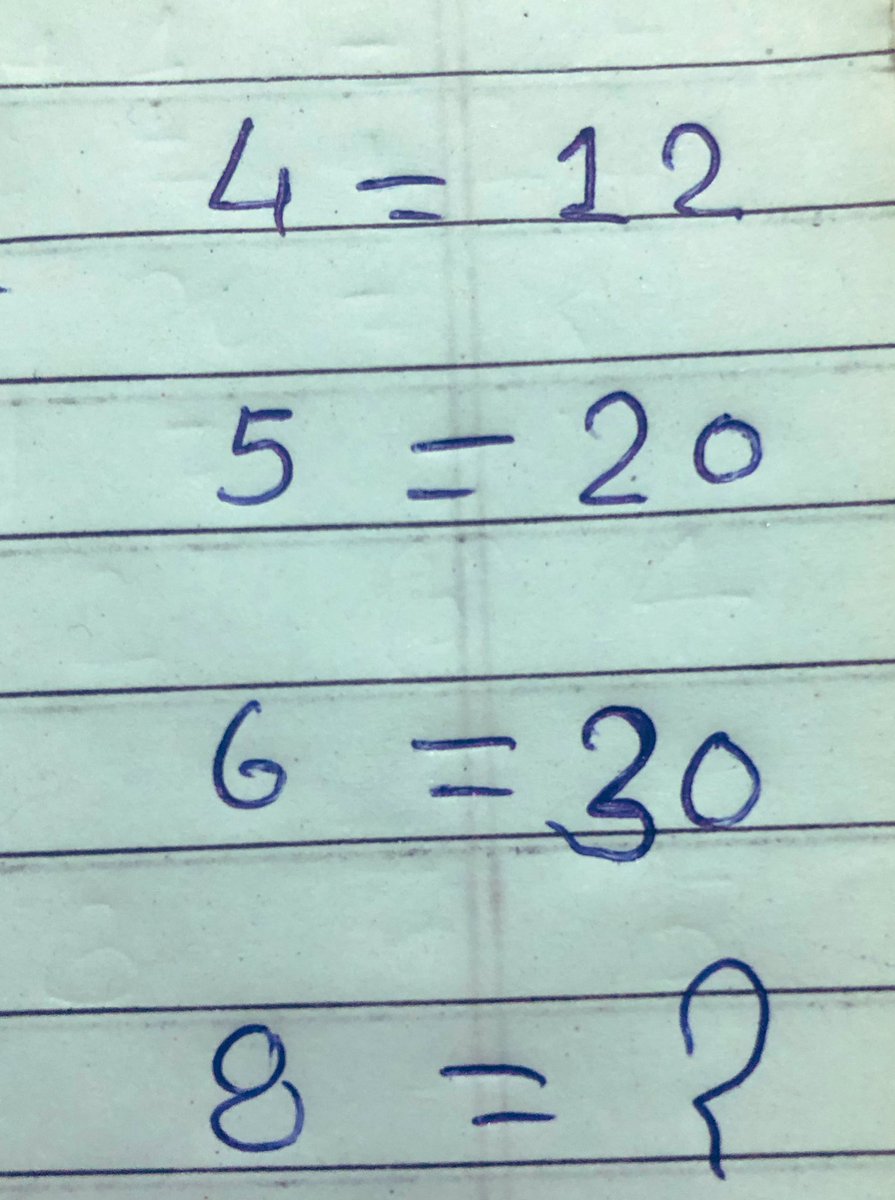 4 = 12
5 = 20
6 = 30
8 = ?